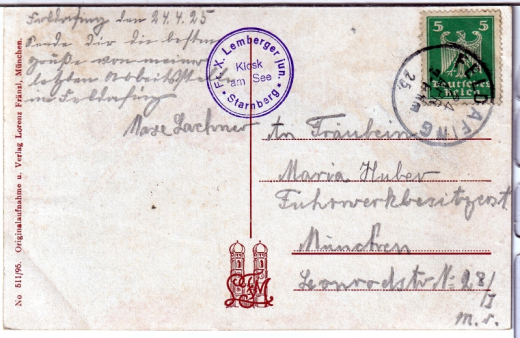 Feldafing den 24.4.25
Sende Dir die besten
Grüße von meiner
letzten Arbeitsstelle
in Feldafing
Max Lachner
Fr. X. Lemberger jun.
Kiosk
am See
Starnberg
5 5
Deutsches
Reich
FELDAFING
25.
An Fräulein
Maria Huber
Fuhrwerkbesitzerst
München
Leonrodstr No 28/
II
m. r.
No 511/95. Originalaufnahme u. Verlag Lorenz Fränzl, München.